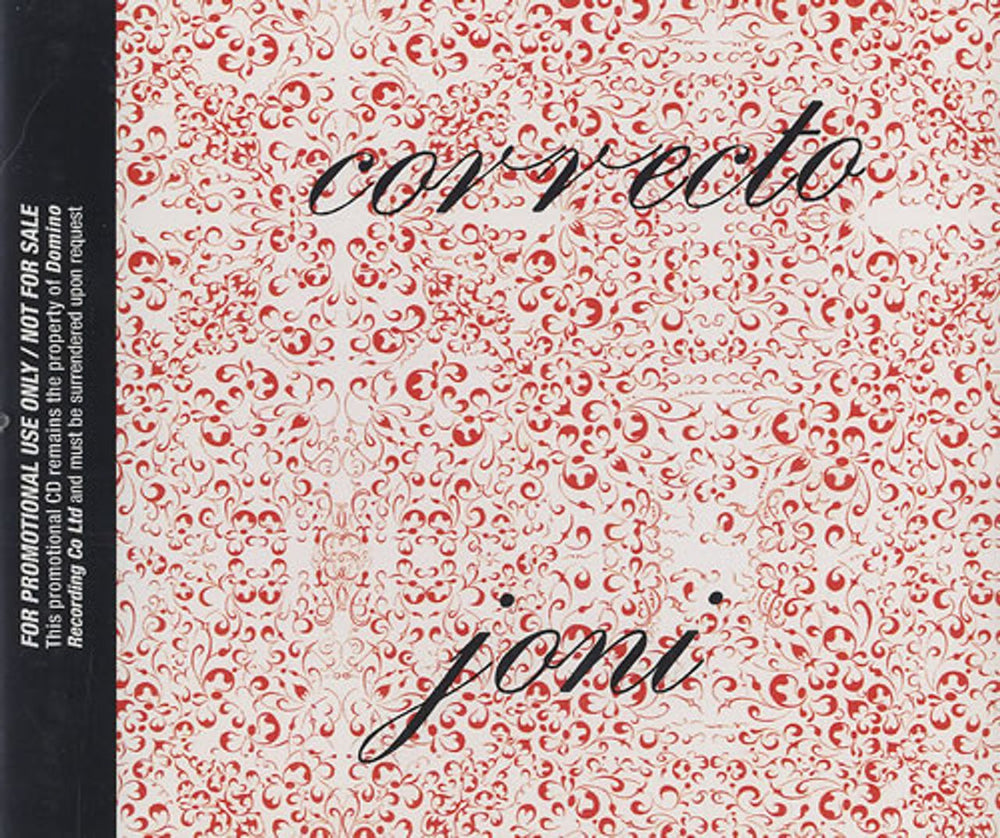 FOR PROMOTIONAL USE ONLY / NOT FOR SALE
This promotional CD remains the property of Domino
Recording Co Ltd and must be surrendered upon request
correcto
joni